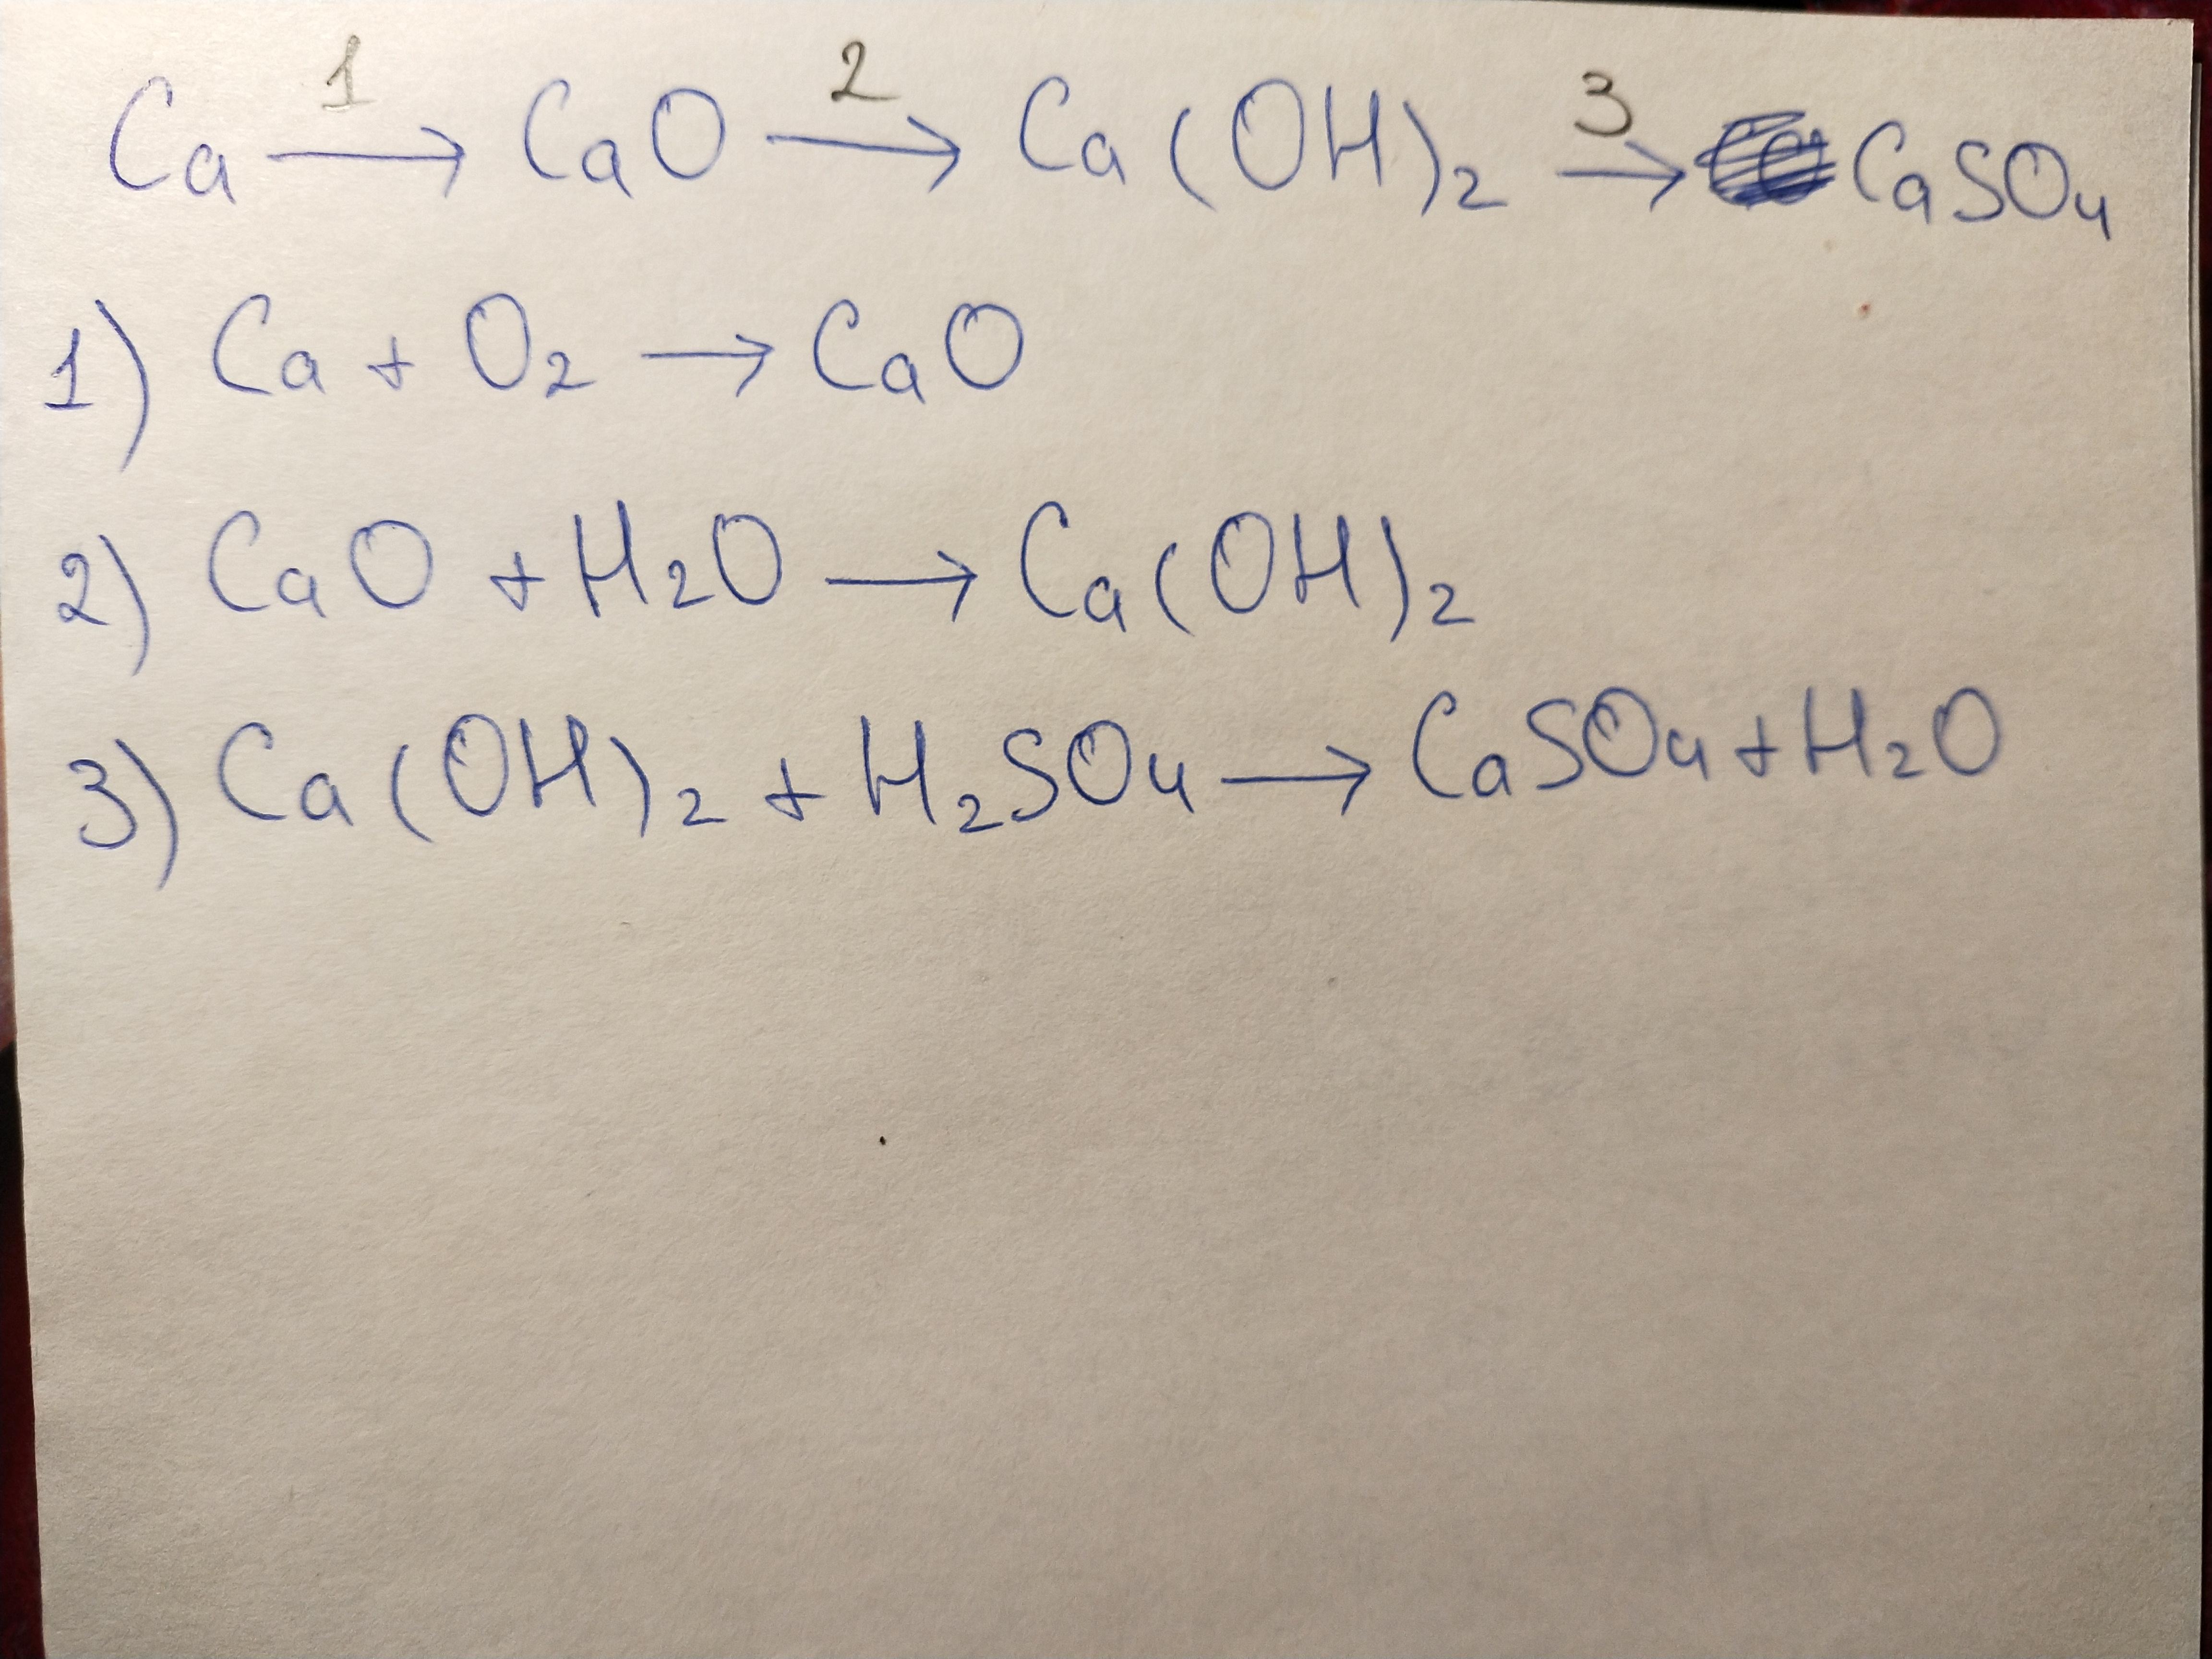 Ca 1→ CaO 2→ Ca(OH)₂ 3→ CaSO₄
1) Ca + O₂ → CaO
2) CaO + H₂O → Ca(OH)₂
3) Ca(OH)₂ + H₂SO₄ → CaSO₄ + H₂O